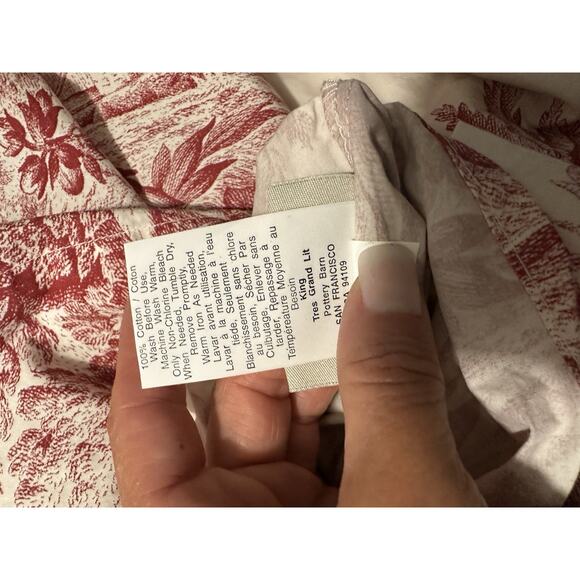 100% Cotton / Coton
Wash Before Use,
Machine Wash Warm,
Only Non-Chlorine Bleach
When Needed, Tumble Dry,
Remove Promptly,
Warm Iron As Needed
Lavar avant utilisation,
Lavar à la machine à l'eau
tiède. Seulement
Blanchissement sans chlore
au besoin, Sécher Par
Culbutage, Enlever sans
tarder, Repassage à
Température Moyenne au
Besoin
King
Tres Grand Lit
Pottery Barn
SAN FRANCISCO
94109